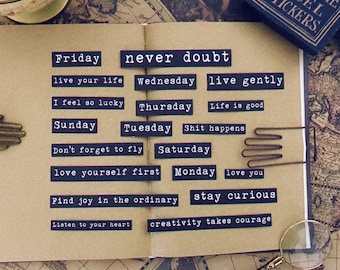 Friday
never doubt
live your life
Wednesday
live gently
I feel so lucky
Thursday
Life is good
Sunday
Tuesday
Shit happens
Don't forget to fly
Saturday
love yourself first
Monday
love you
Find joy in the ordinary
stay curious
Listen to your heart
creativity takes courage
STICKERS